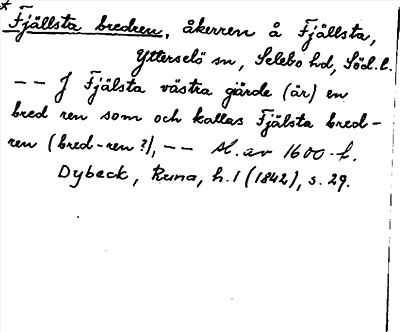 * Fjällsta bredren, åkerren å Fjällsta,
Ytterselö sn, Selebo hd, Söd. l.
-- J Fjälsta västra gärde (är) en
bred ren som och kallas Fjälsta bred-
ren (bred-ren?), -- sl. av 1600-t.
Dybeck, Runa, h. 1 (1842), s. 29.